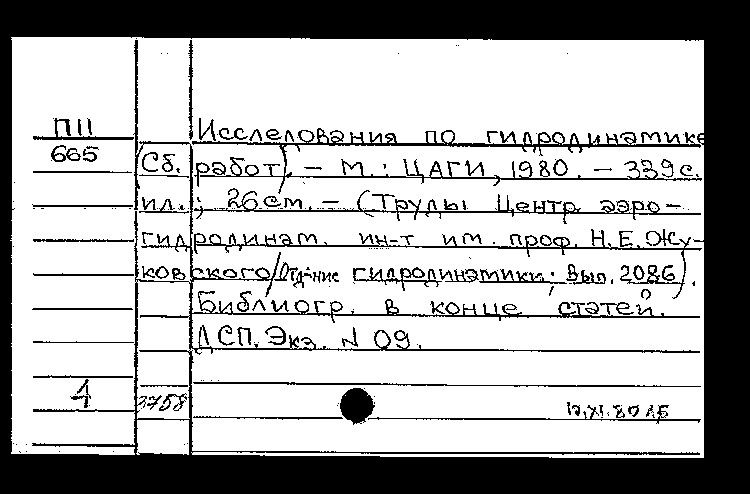 П11
665
Исследования по гидродинамике
(Сб. работ). – М.: ЦАГИ, 1980. – 339с.
ил.; 26см. – (Труды Центр. аэро-
гидродинам. ин-т им. проф. Н.Е.Жу-
ковского/Отд-ние гидродинамики; Вып. 2086).
Библиогр. в конце статей.
ДСП. Экз. N 09.
4
3758